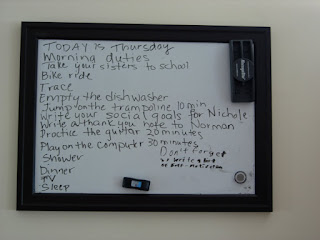 TODAY IS Thursday
Morning duties
Take your sisters to school
Bike ride
Trace
Empty the dishwasher
Jump on the trampoline 10 min
Write your social goals for Nichole
Write a thank you note to Norman
Practice the guitar 20 minutes
Play on the computer 30 minutes
Shower
Dinner
TV
Sleep
Don't forget